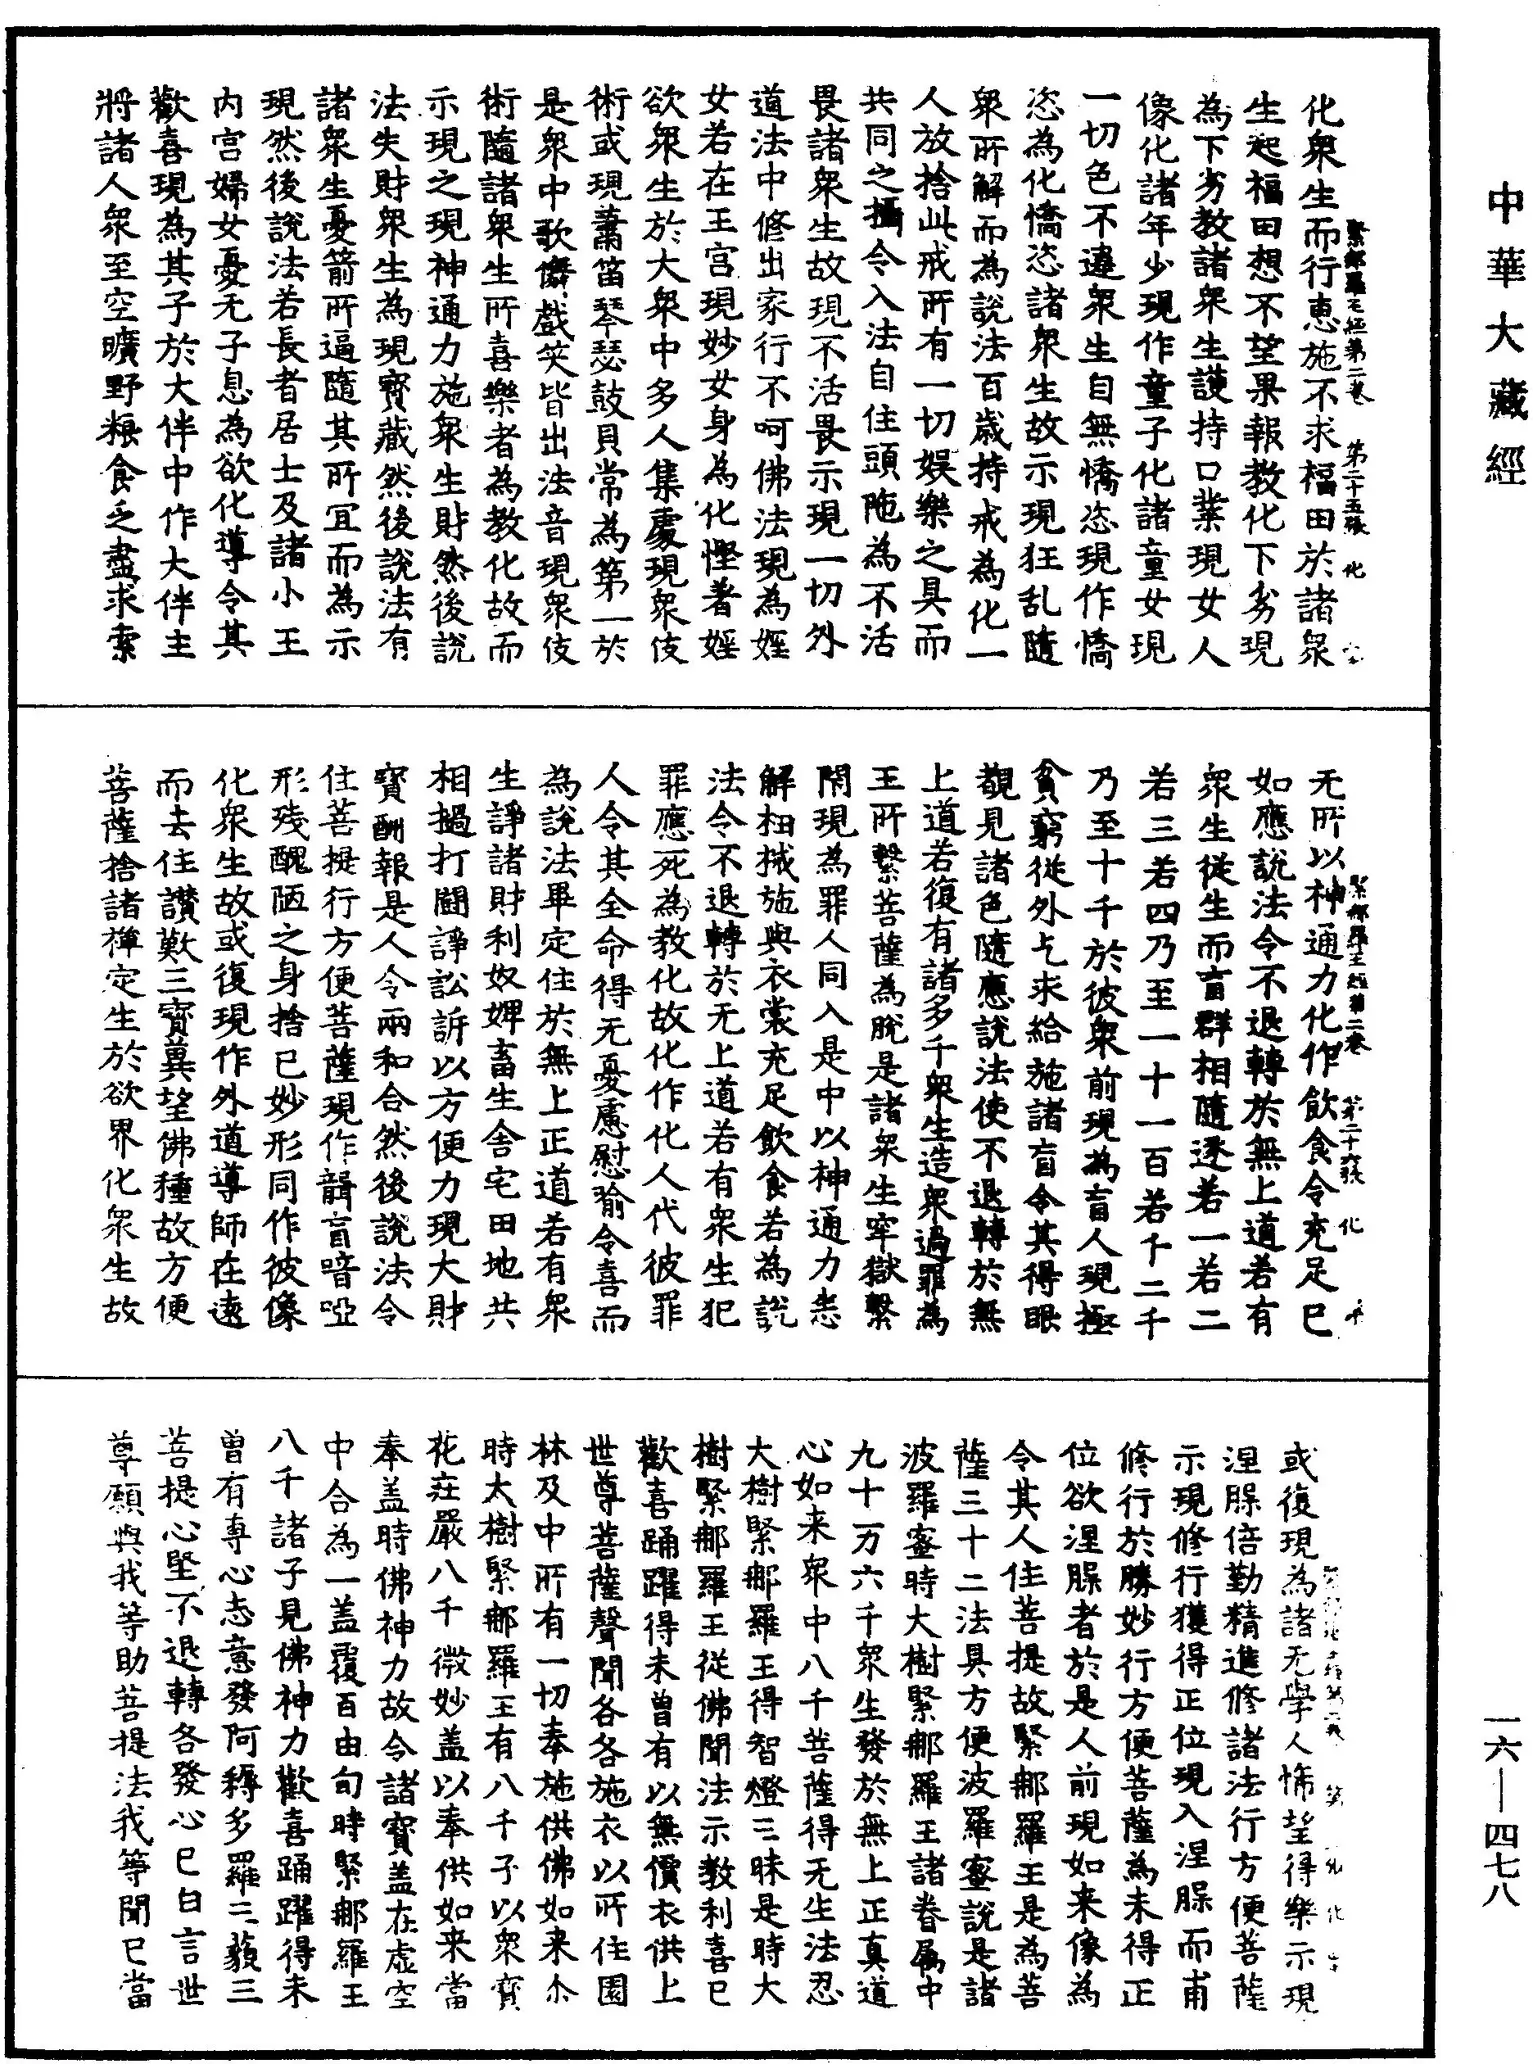 中華大藏經
緊那羅王經第二卷 第二十五張 化
化衆生而行惠施不求福田於諸衆
生起福田想不望果報教化下劣現
為下劣教諸衆生護持口業現女人
像化諸年少現作童子化諸童女現
一切色不違衆生自無憍恣現作憍
恣為化憍恣諸衆生故示現狂乱隨
衆所解而為說法百歲持戒為化一
人放捨此戒所有一切娛樂之具而
共同之攝令入法自住頭陁為不活
畏諸衆生故現不活畏示現一切外
道法中修出家行不呵佛法現為婬
女若在王宮現妙女身為化慳著婬
欲衆生於大衆中多人集處現衆伎
術或現蕭笛琴瑟鼓貝常為第一於
是衆中歌儛戲笑皆出法音現衆伎
術隨諸衆生所喜樂者為教化故而
示現之現神通力施衆生財然後說
法失財衆生為現寶藏然後說法有
諸衆生憂箭所逼隨其所宜而為示
現然後說法若長者居士及諸小王
內宮婦女憂无子息為欲化導令其
歡喜現為其子於大伴中作大伴主
將諸人衆至空曠野粮食乏盡求索
緊那羅王經第二卷 第二十六張 化
无所以神通力化作飲食令充足已
如應說法令不退轉於無上道若有
衆生從生而盲群相隨逐若一若二
若三若四乃至一十一百若千二千
乃至十千於彼衆前現為盲人現極
貧窮從外乞求給施諸盲令其得眼
覩見諸色隨應說法使不退轉於無
上道若復有諸多千衆生造衆過罪為
王所繫菩薩為脫是諸衆生牢獄繫
閇現為罪人同入是中以神通力悉
解杻械施與衣裳充足飲食若為說
法令不退轉於无上道若有衆生犯
罪應死為教化故化作化人代彼罪
人令其全命得无憂慮慰喻令喜而
為說法畢定住於無上正道若有衆
生諍諸財利奴婢畜生舍宅田地共
相撾打鬪諍訟訴以方便力現大財
寶酬報是人令兩和合然後說法令
住菩提行方便菩薩現作聾盲喑啞
形殘醜陋之身捨已妙形同作彼像
化衆生故或復現作外道導師在遠
而去住讚歎三寶兾望佛種故方便
菩薩捨諸禪定生於欲界化衆生故
或復現為諸无學人悕望得樂示現
涅脲倍勤精進修諸法行方便菩薩
示現修行獲得正位現入涅脲而甫
修行於勝妙行方便菩薩為未得正
位欲涅脲者於是人前現如来像為
令其人住菩提故緊那羅王是為菩
薩三十二法具方便波羅蜜說是諸
波羅蜜時大樹緊那羅王諸眷屬中
九十一万六千衆生發於無上正真道
心如来衆中八千菩薩得无生法忍
大樹緊那羅王得智燈三昧是時大
樹緊那羅王從佛聞法示教利喜已
歡喜踊躍得未曾有以無價衣供上
世尊菩薩聲聞各各施衣以所住園
林及中所有一切奉施供佛如来尒
時大樹緊那羅王有八千子以衆寶
花莊嚴八千微妙盖以奉供如来當
奉盖時佛神力故令諸寶盖在虛空
中合為一盖覆百由旬時緊那羅王
八千諸子見佛神力歡喜踊躍得未
曾有專心志意發阿耨多羅三藐三
菩提心堅不退轉各發心已白言世
尊願與我等助菩提法我等聞已當
一六—四七八